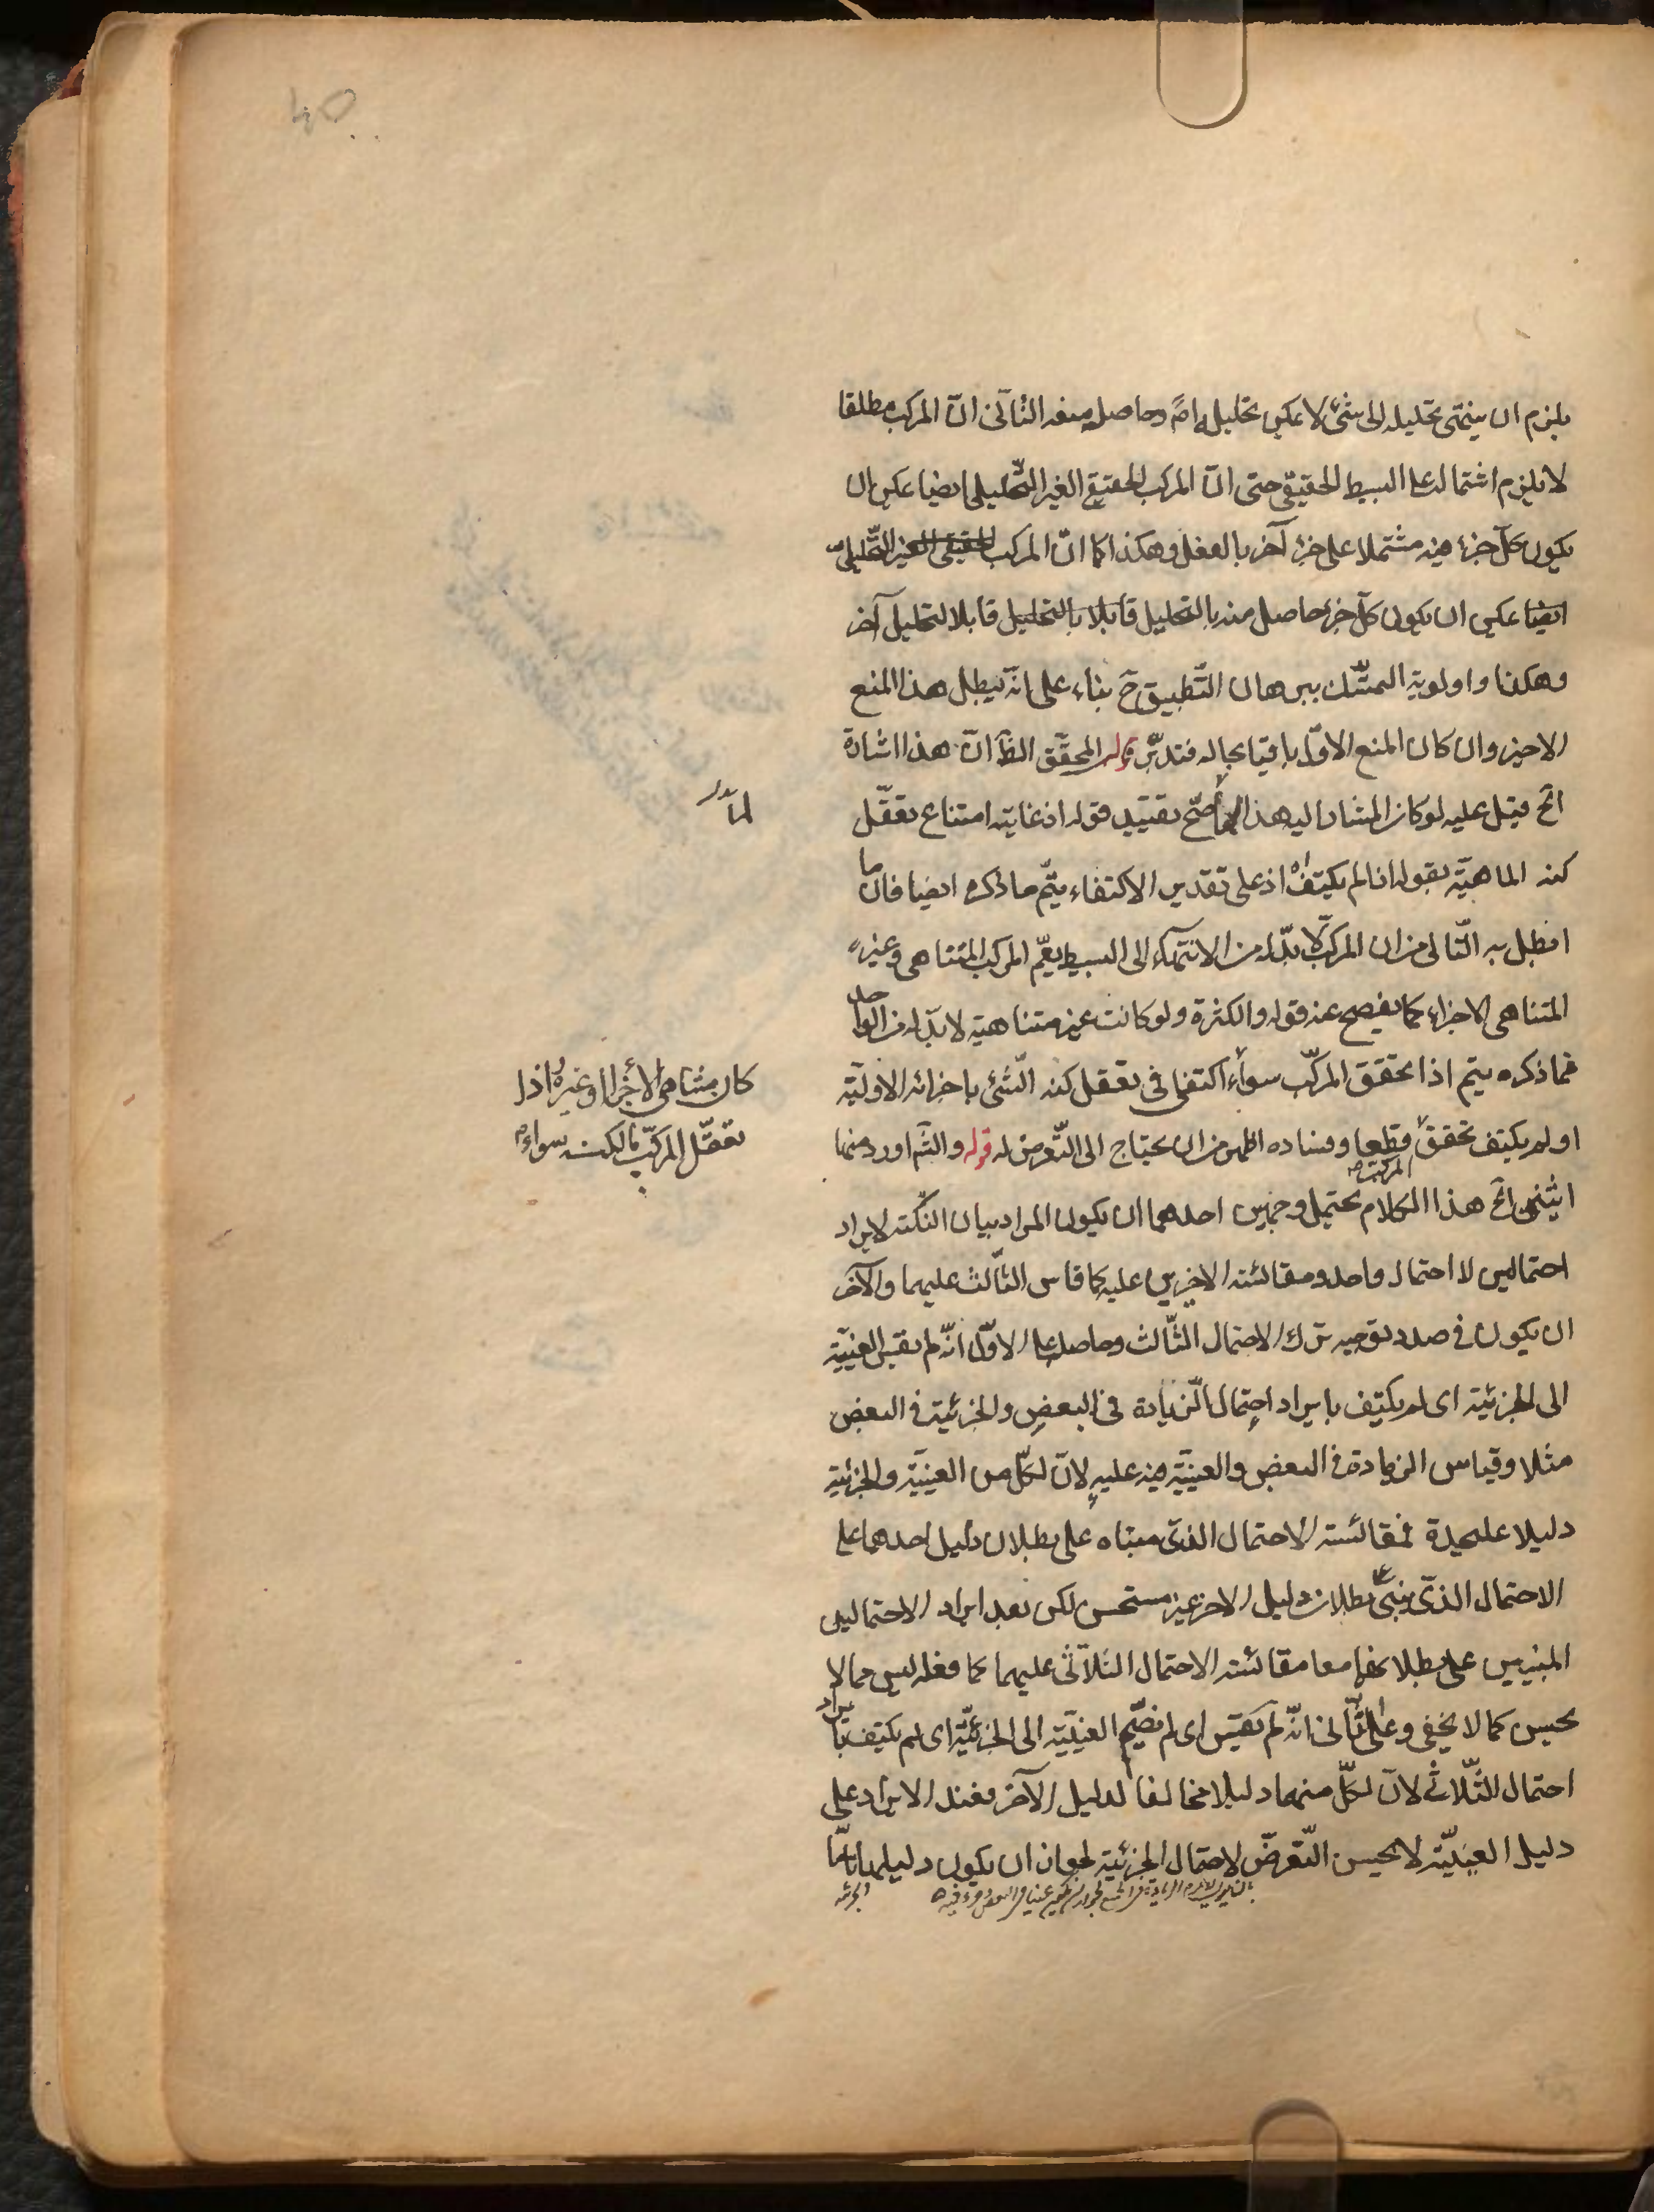 يلزم ان ينتهى تحليله الى شئ لا يمكن تحليله اصلا وحاصل منعه الثانى انّ المركب مطلقا
لا يلزم اشتماله على البسيط الحقيقى حتى انّ المركب الحقيقى الغير التّحليلى ايضا يمكن ان
يكون كلّ جزء منه مشتملا على جزء آخر بالفعل وهكذا كما انّ المركب الحقيقى الغير التّحليلى
ايضا يمكن ان يكون كلّ جزء حاصل منه بالتحليل قابلا بالتحليل قابلا لتحليل آخر
وهكذا واولوية التمسّك ببرهان التّطبيق ح بناء على انّه يبطل هذا المنع
الاخير وان كان المنع الاوّل باقيا بحاله فتدبّر قوله المحقّق الظّ انّ هذا اشارة
الخ قيل عليه لو كان المشار اليه هذا لما صّح تقييد قوله اذ غايته امتناع تعقّل
كنه الماهيّة بقوله اذا لم يكتف اه اذ على تقدير الاكتفاء يتمّ ما ذكره ايضا فان ما
ابطل به التّالى من ان المركبّ لا بدّ له من الانتهاء الى البسيط يعمّ المركب المتناهى وغير
المتناهى الاجزاء كما يفصح عنه قوله والكثرة ولو كانت غير متناهية لا بدّ له من الواحد
فما ذكره يتم اذا تحقق المركّب سواء اكتفى فى تعقل كنه الشّئ باجزائه الاوليّة
كان متناهى الأجزاء او غيره اذا
تعقّل المركبّ بالكنه سواء
او لم يكتف تحقق المركب قطعا وفساده اظهر من ان يحتاج الى التّعرض له قوله والشّم اورد منها
اثنين الخ هذا الكلام يحتمل وجهين احدهما ان يكون المراد بيان النّكتة لايراد
احتمالين لا احتمال واحد ومقائسة الاخيرين عليه كما قاس الثّالث عليهما والآخر
ان يكون فى صدد توجيه ترك الاحتمال الثّالث وحاصله على الاوّل انّه لم يقس العينيّة
الى الجزئية اى لم يكتف بايراد احتمال الزّيادة فى البعض والجزئية فى البعض
مثلا وقياس الزيادة فى البعض والعينيّة فيه عليه لانّ لكلّ من العينيّة والجزئية
دليلا عليحدة فمقائسة الاحتمال الذى مبناه على بطلان دليل احدهما على
الاحتمال الذى يبنى على بطلان دليل الاخر غير مستحسن لكن بعد ايراد الاحتمالين
المبنيين على بطلانهما معا مقائسة الاحتمال الثلاثى عليهما كما فعله ليس مما لا
يحسن كما لا يخفى وعلى الثّانى انّه لم يقس اى لم يضّم العينيّة الى الجزئيّة اى لم يكتف بايراد
احتمال الثّلاثى لانّ لكلّ منهما دليلا مخالفا لدليل الآخر فعند الايراد على
دليل العينيّة لا يحسن التّعرّض لاحتمال الجزئية لجواز ان يكون دليلها تامّا